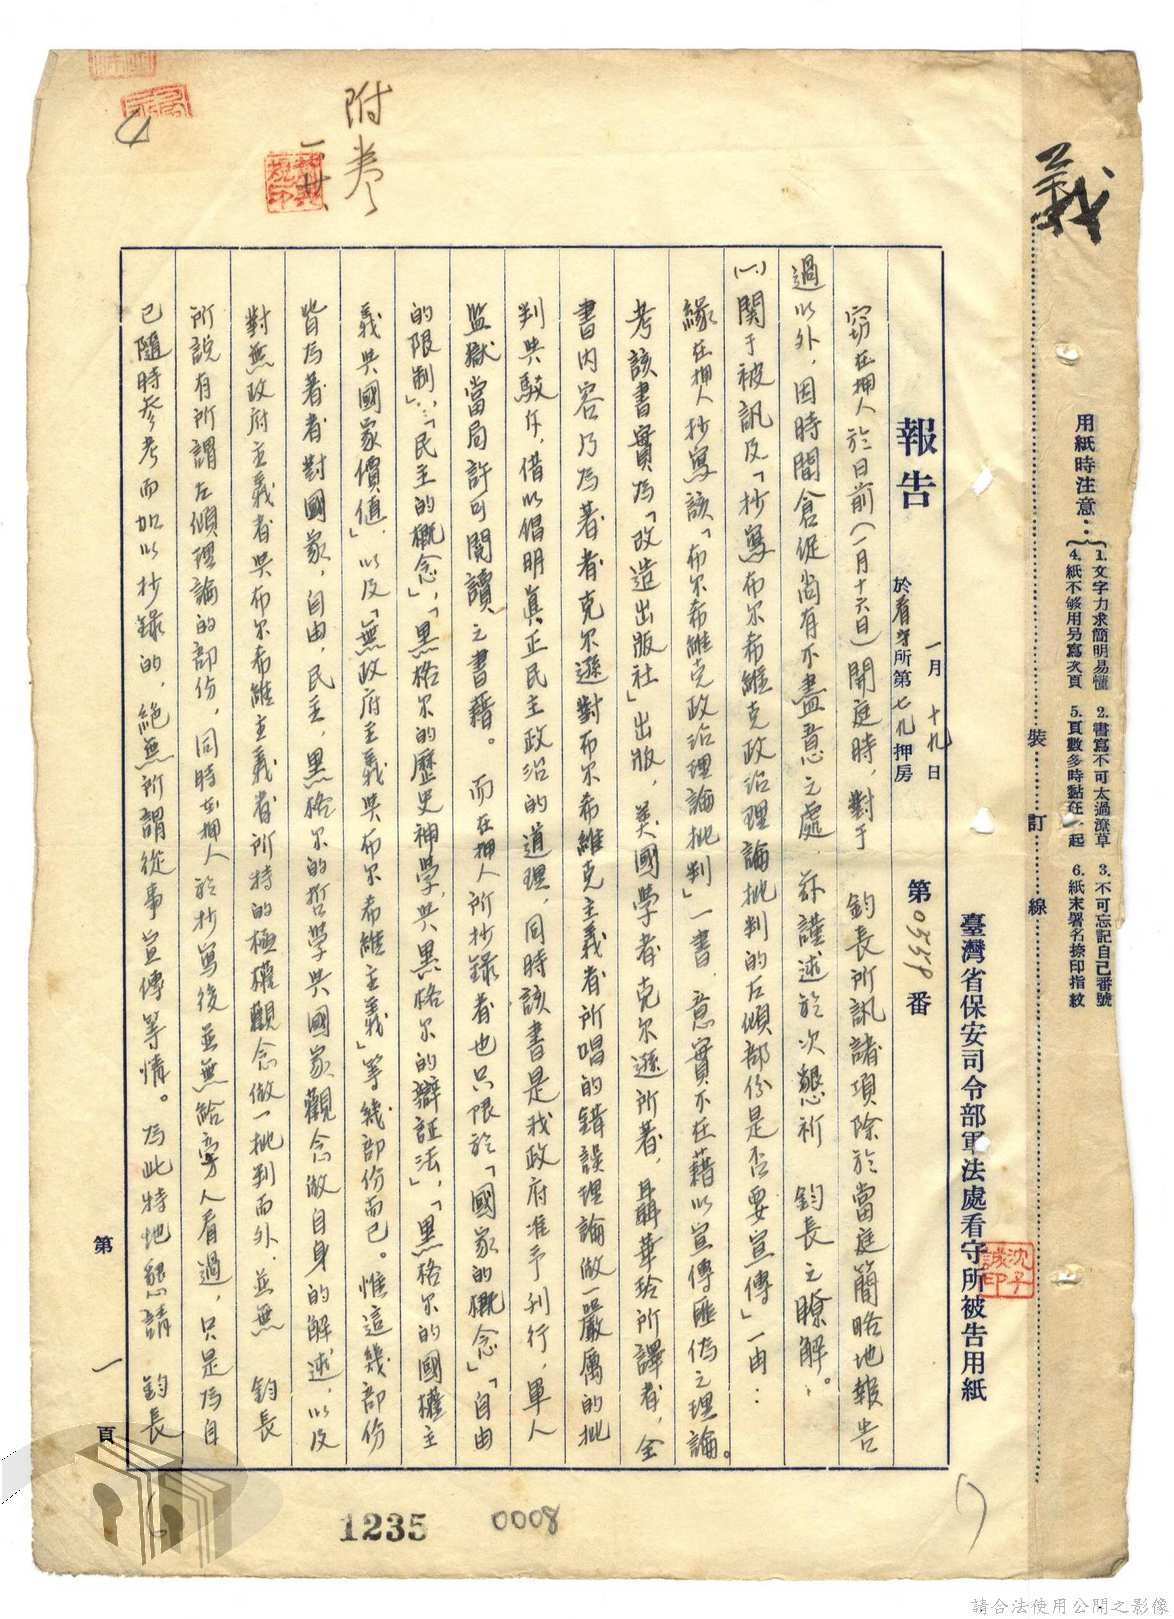 義
用紙時注意：
1. 文字力求簡明易懂 2. 書寫不可太過潦草 3. 不可忘記自己番號
4. 紙不够用另寫次頁 5. 頁數多時黏在一起 6. 紙末署名捺印指紋
裝訂線
臺灣省保安司令部軍法處看守所被告用紙
沈子誠印
報告
一月十九日
於看守所第七九押房
第0558番
竊在押人於日前（一月十六日）開庭時，對于 鈞長所訊諸項除於當庭簡略地報告
過以外，因時間倉促尚有不盡意之處．茲謹述於次懇祈 鈞長之瞭解：
(一)關于被訊及「抄寫布尔希維克政治理論批判的左傾部份是否要宣傳」一由：
緣在押人抄寫該「布尔希維克政治理論批判」一書．意實不在藉以宣傳匪僞之理論。
考該書實為「改造出版社」出版，美國學者克尔遜所著，聶華玲所譯者，全
書内容乃為著者克尔遜對布尔希維克主義者所唱的錯誤理論做一嚴厲的批
判與駁斥，借以倡明真正民主政治的道理，同時該書是我政府准予刋行，軍人
監獄當局許可閱讀之書籍。 而在押人所抄錄者也只限於「國家的概念」「自由
的限制」…「民主的概念」，「黑格尔的歷史神學，與黑格尔的辯証法」，「黑格尔的國權主
義與國家價值」，以及「無政府主義與布尔希維主義」等幾部份而已。惟這幾部份
皆為著者對國家，自由，民主，黑格尔的哲學與國家觀念做自身的解述，以及
對無政府主義者與布尔希維主義者所特的極權觀念做一批判而外，並無 鈞長
所說有所謂左傾理論的部份，同時在押人於抄寫後並無給旁人看過，只是為自
己隨時參考而加以抄錄的，絕無所謂從事宣傳等情。為此特地懇請 鈞長
第一頁
附卷
一、廿、
1235
0008
請合法使用公開之影像